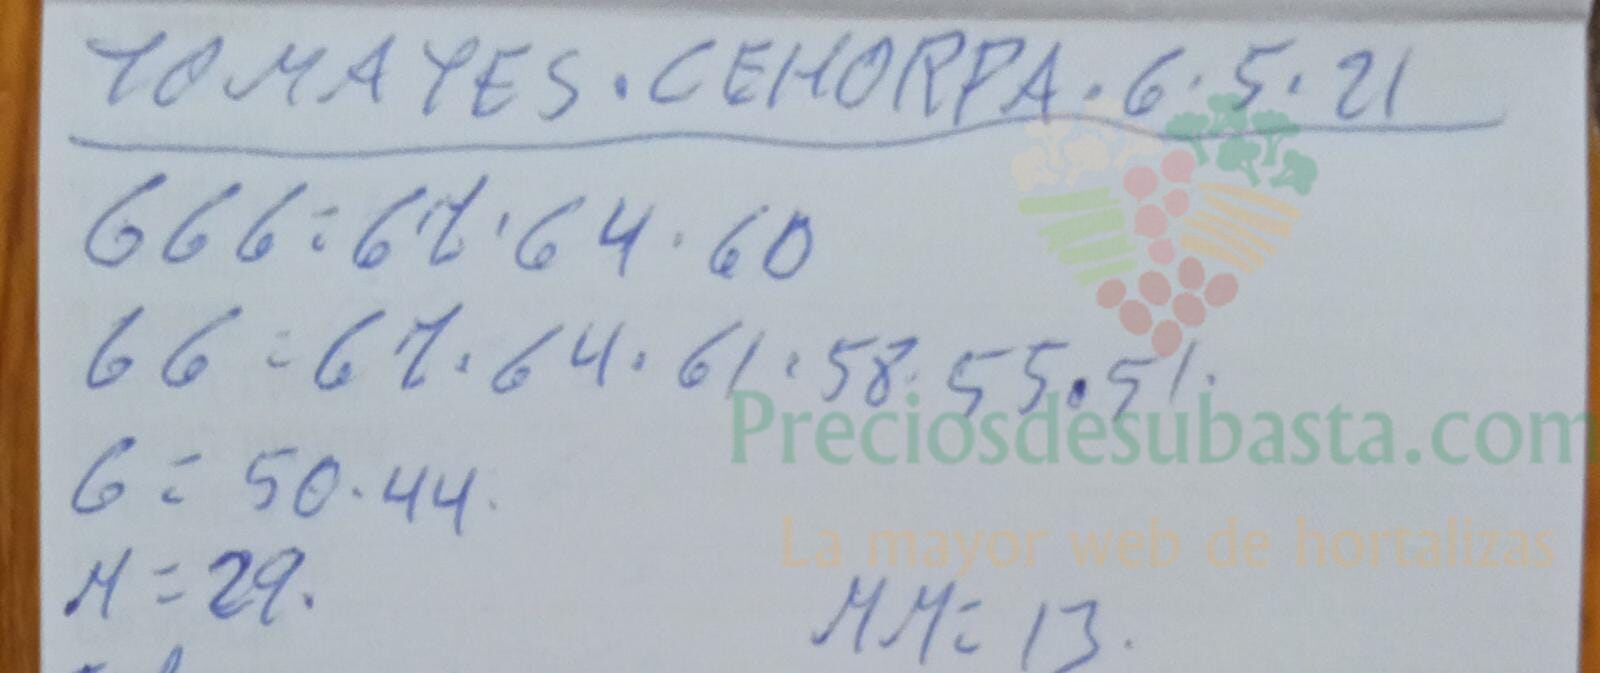 TOMATES.CEHORPA.6.5.21
GGG=67.64.60
GG=67.64.61.58.55.51.
G=50.44.
M=29.
MM=13.
Preciosdesubasta.com
La mayor web de hortalizas